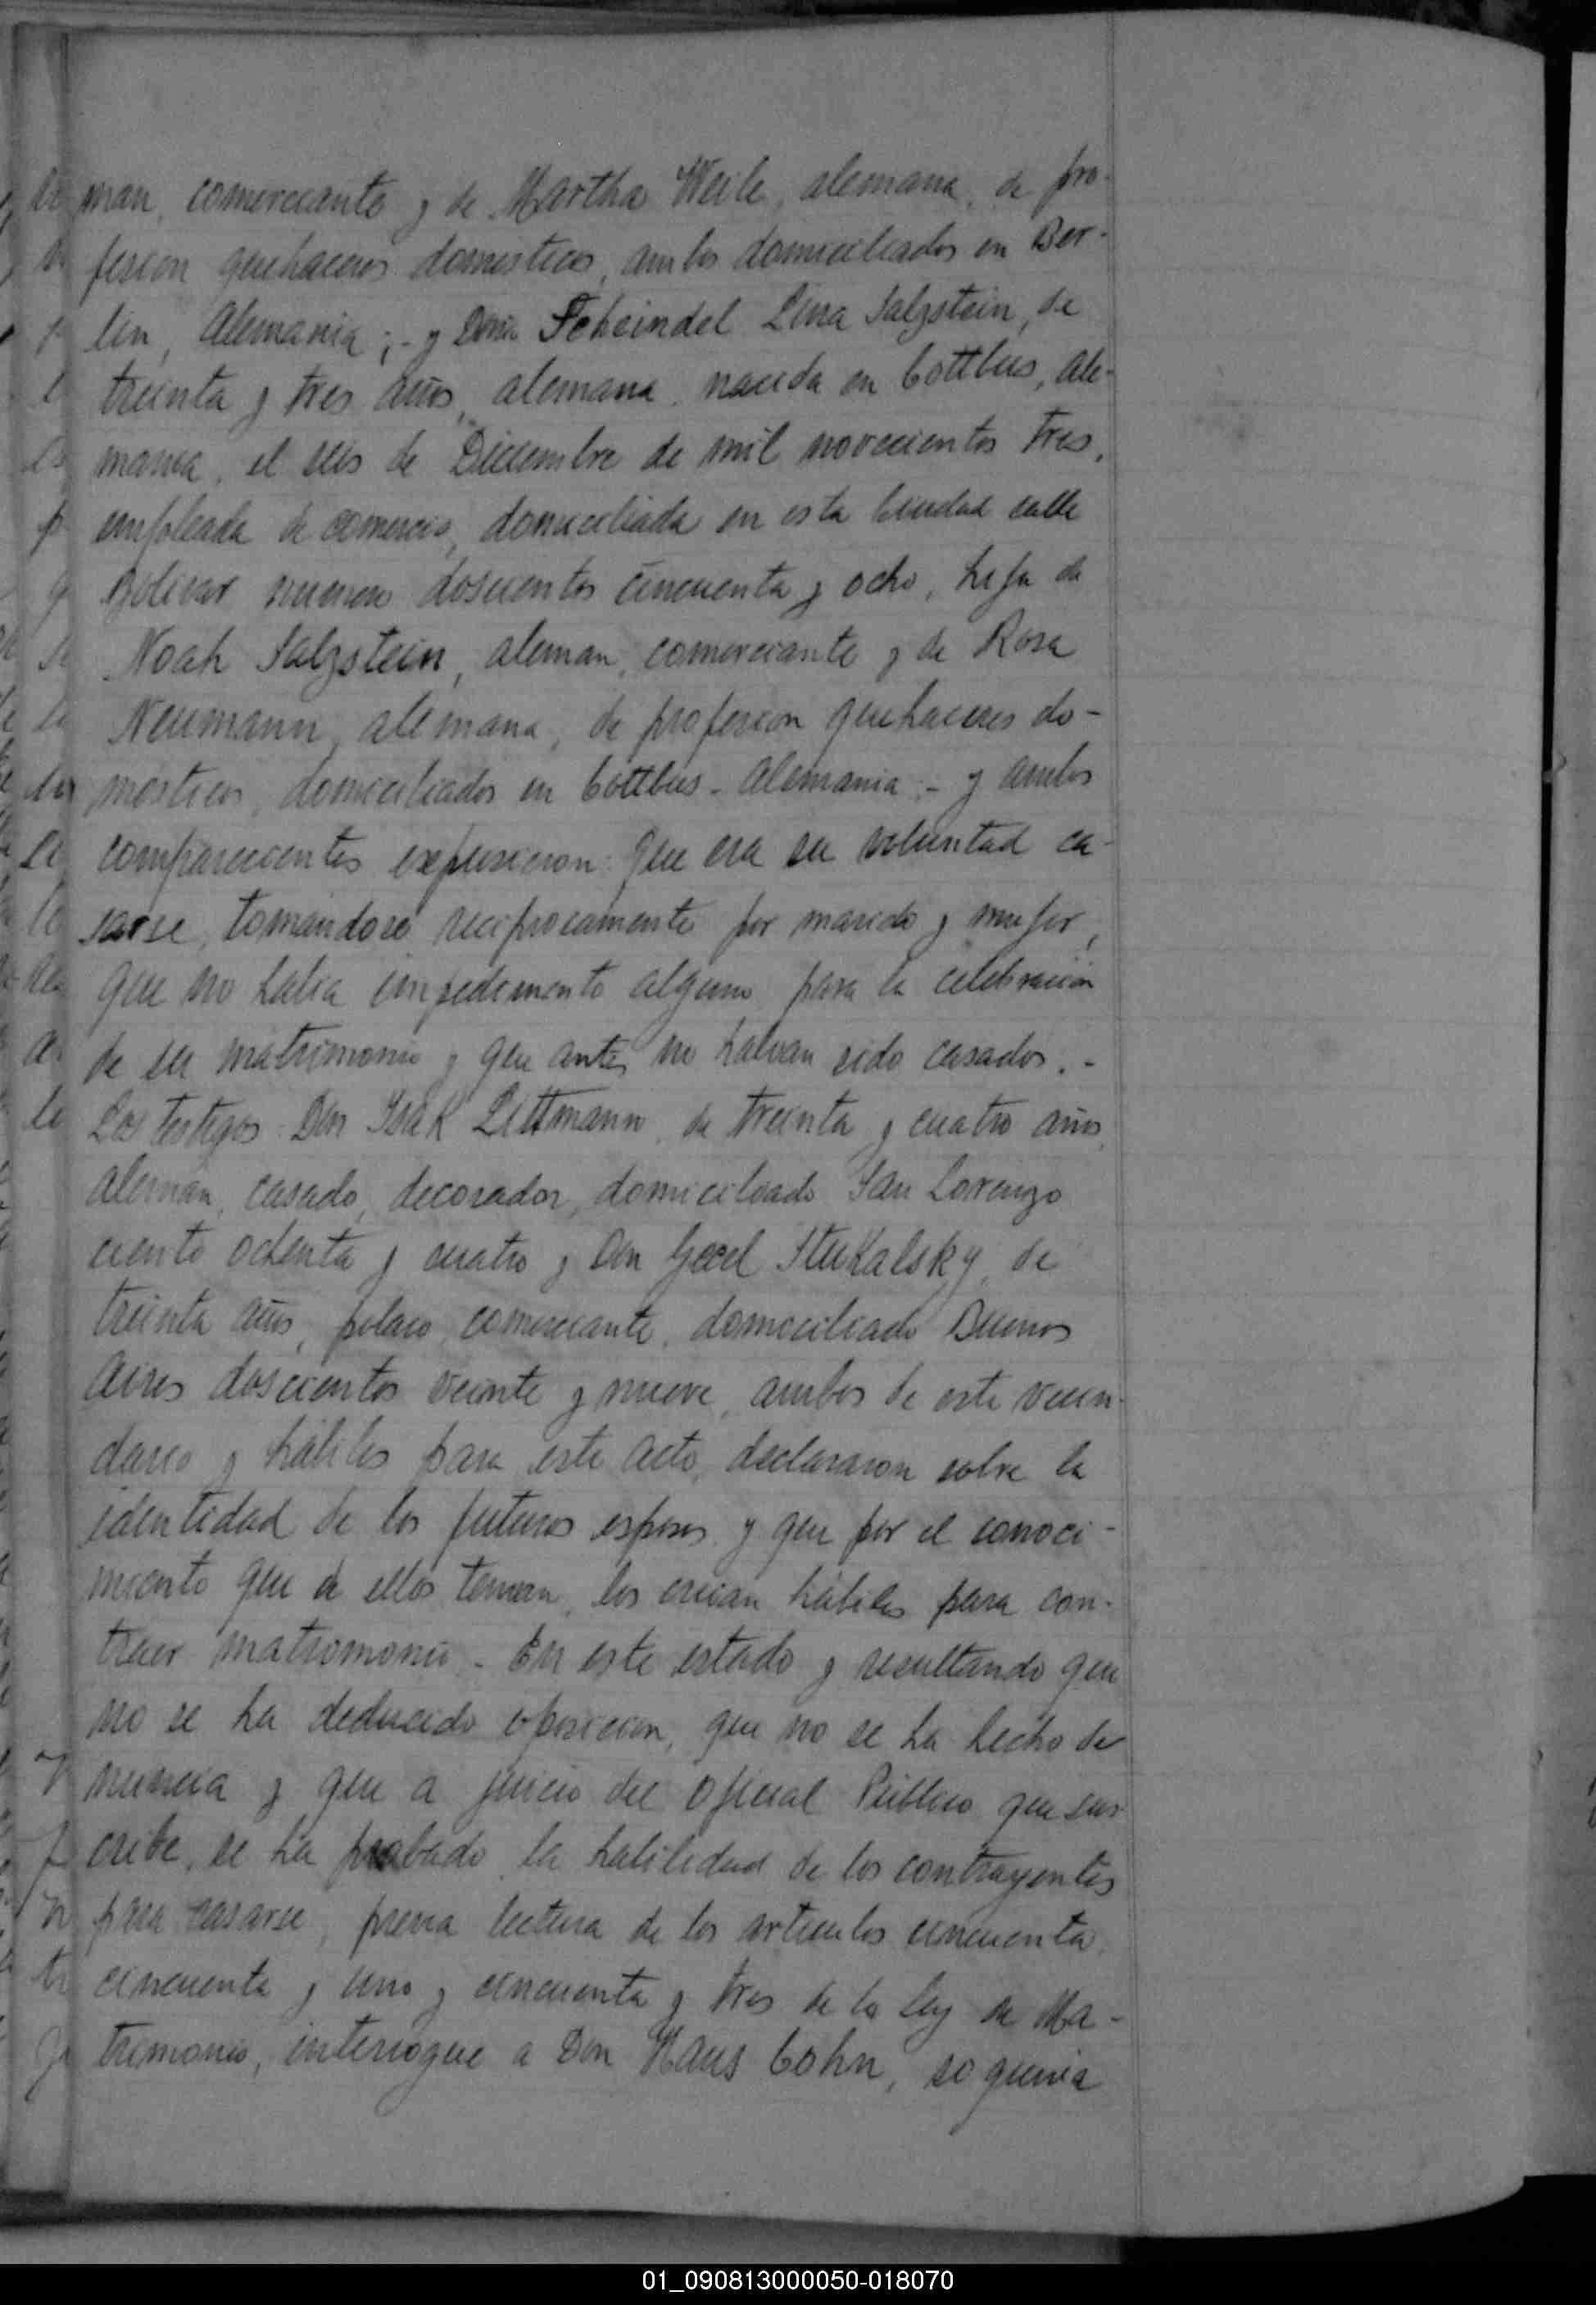 man, comerciante y de Martha Weile, alemana, de pro-
fesion quehaceres domesticos, ambos domiciliados en Ber-
lin, Alemania;- y Doña Scheindel Lina Salzstein, de
treinta y tres años, alemana, nacida en Cottbus, Ale-
mania, el seis de Diciembre de mil novecientos tres,
empleada de comercio, domiciliada en esta Ciudad calle
Bolivar numero doscientos cincuenta y ocho, hija de
Noah Salzstein, aleman, comerciante y de Rosa
Neumann, alemana, de profesion quehaceres do-
mesticos, domiciliados en Cottbus - Alemania;- y ambos
comparecientes expusieron: que era su voluntad ca-
sarse, tomandose reciprocamente por marido y mujer,
que no habia impedimento alguno para la celebracion
de su matrimonio y que antes no habian sido casados.-
Los testigos: Don Isak Littmann, de treinta y cuatro años,
aleman, casado, decorador, domiciliado San Lorenzo
ciento ochenta y cuatro y Don Stukalsky, de
treinta años, polaco, comerciante, domiciliado Buenos
Aires doscientos veinte y nueve, ambos de este vecin-
dario y hábiles para este acto, declararon sobre la
identidad de los futuros esposos y que por el conoci-
miento que de ellos tenian, los creian hábiles para con-
traer matrimonio.- En este estado y resultando que
no se ha deducido oposicion, que no se ha hecho de
nuncia y que a juicio del Oficial Público que sus
cribe, se ha probado la habilidad de los contrayentes
para casarse, previa lectura de los articulos cincuenta,
cincuenta y uno y cincuenta y tres de la ley de Ma-
trimonio, interrogue a Don Hans Cohn, si queria
01_090813000050-018070